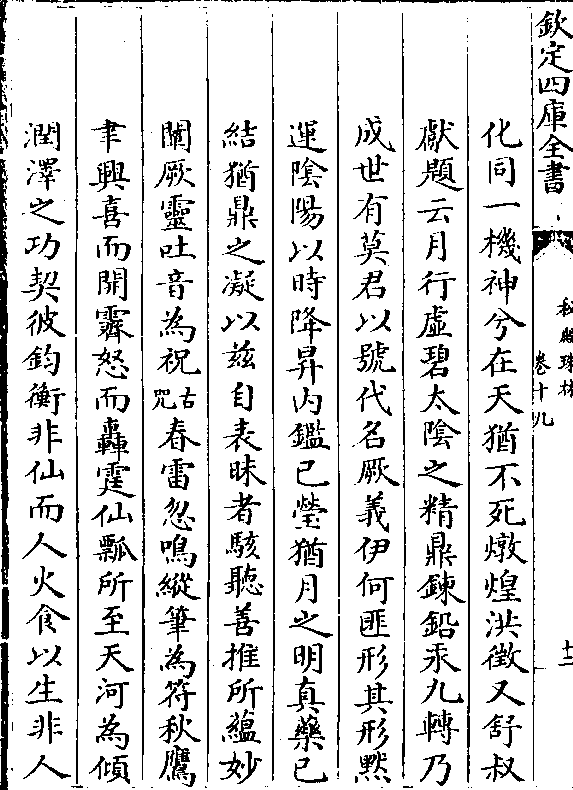 欽定四庫全書
秘殿珠林
卷十九
十二
化同一機神兮在天猶不死燉煌洪徵又舒叔
獻題云月行虛碧太陰之精鼎鍊鉛汞九轉乃
成世有莫君以號代名厥義伊何匪形其形黙
運陰陽以時降昇內鑑已瑩猶月之明真藥已
結猶鼎之凝以兹自表昧者駭聽善推所蘊妙
闡厥靈吐音為祝古咒春雷忽鳴縱筆為符秋鷹
聿興喜而開霽怒而轟霆仙瓢所至天河為傾
潤澤之功契彼鈞衡非仙而人火食以生非人